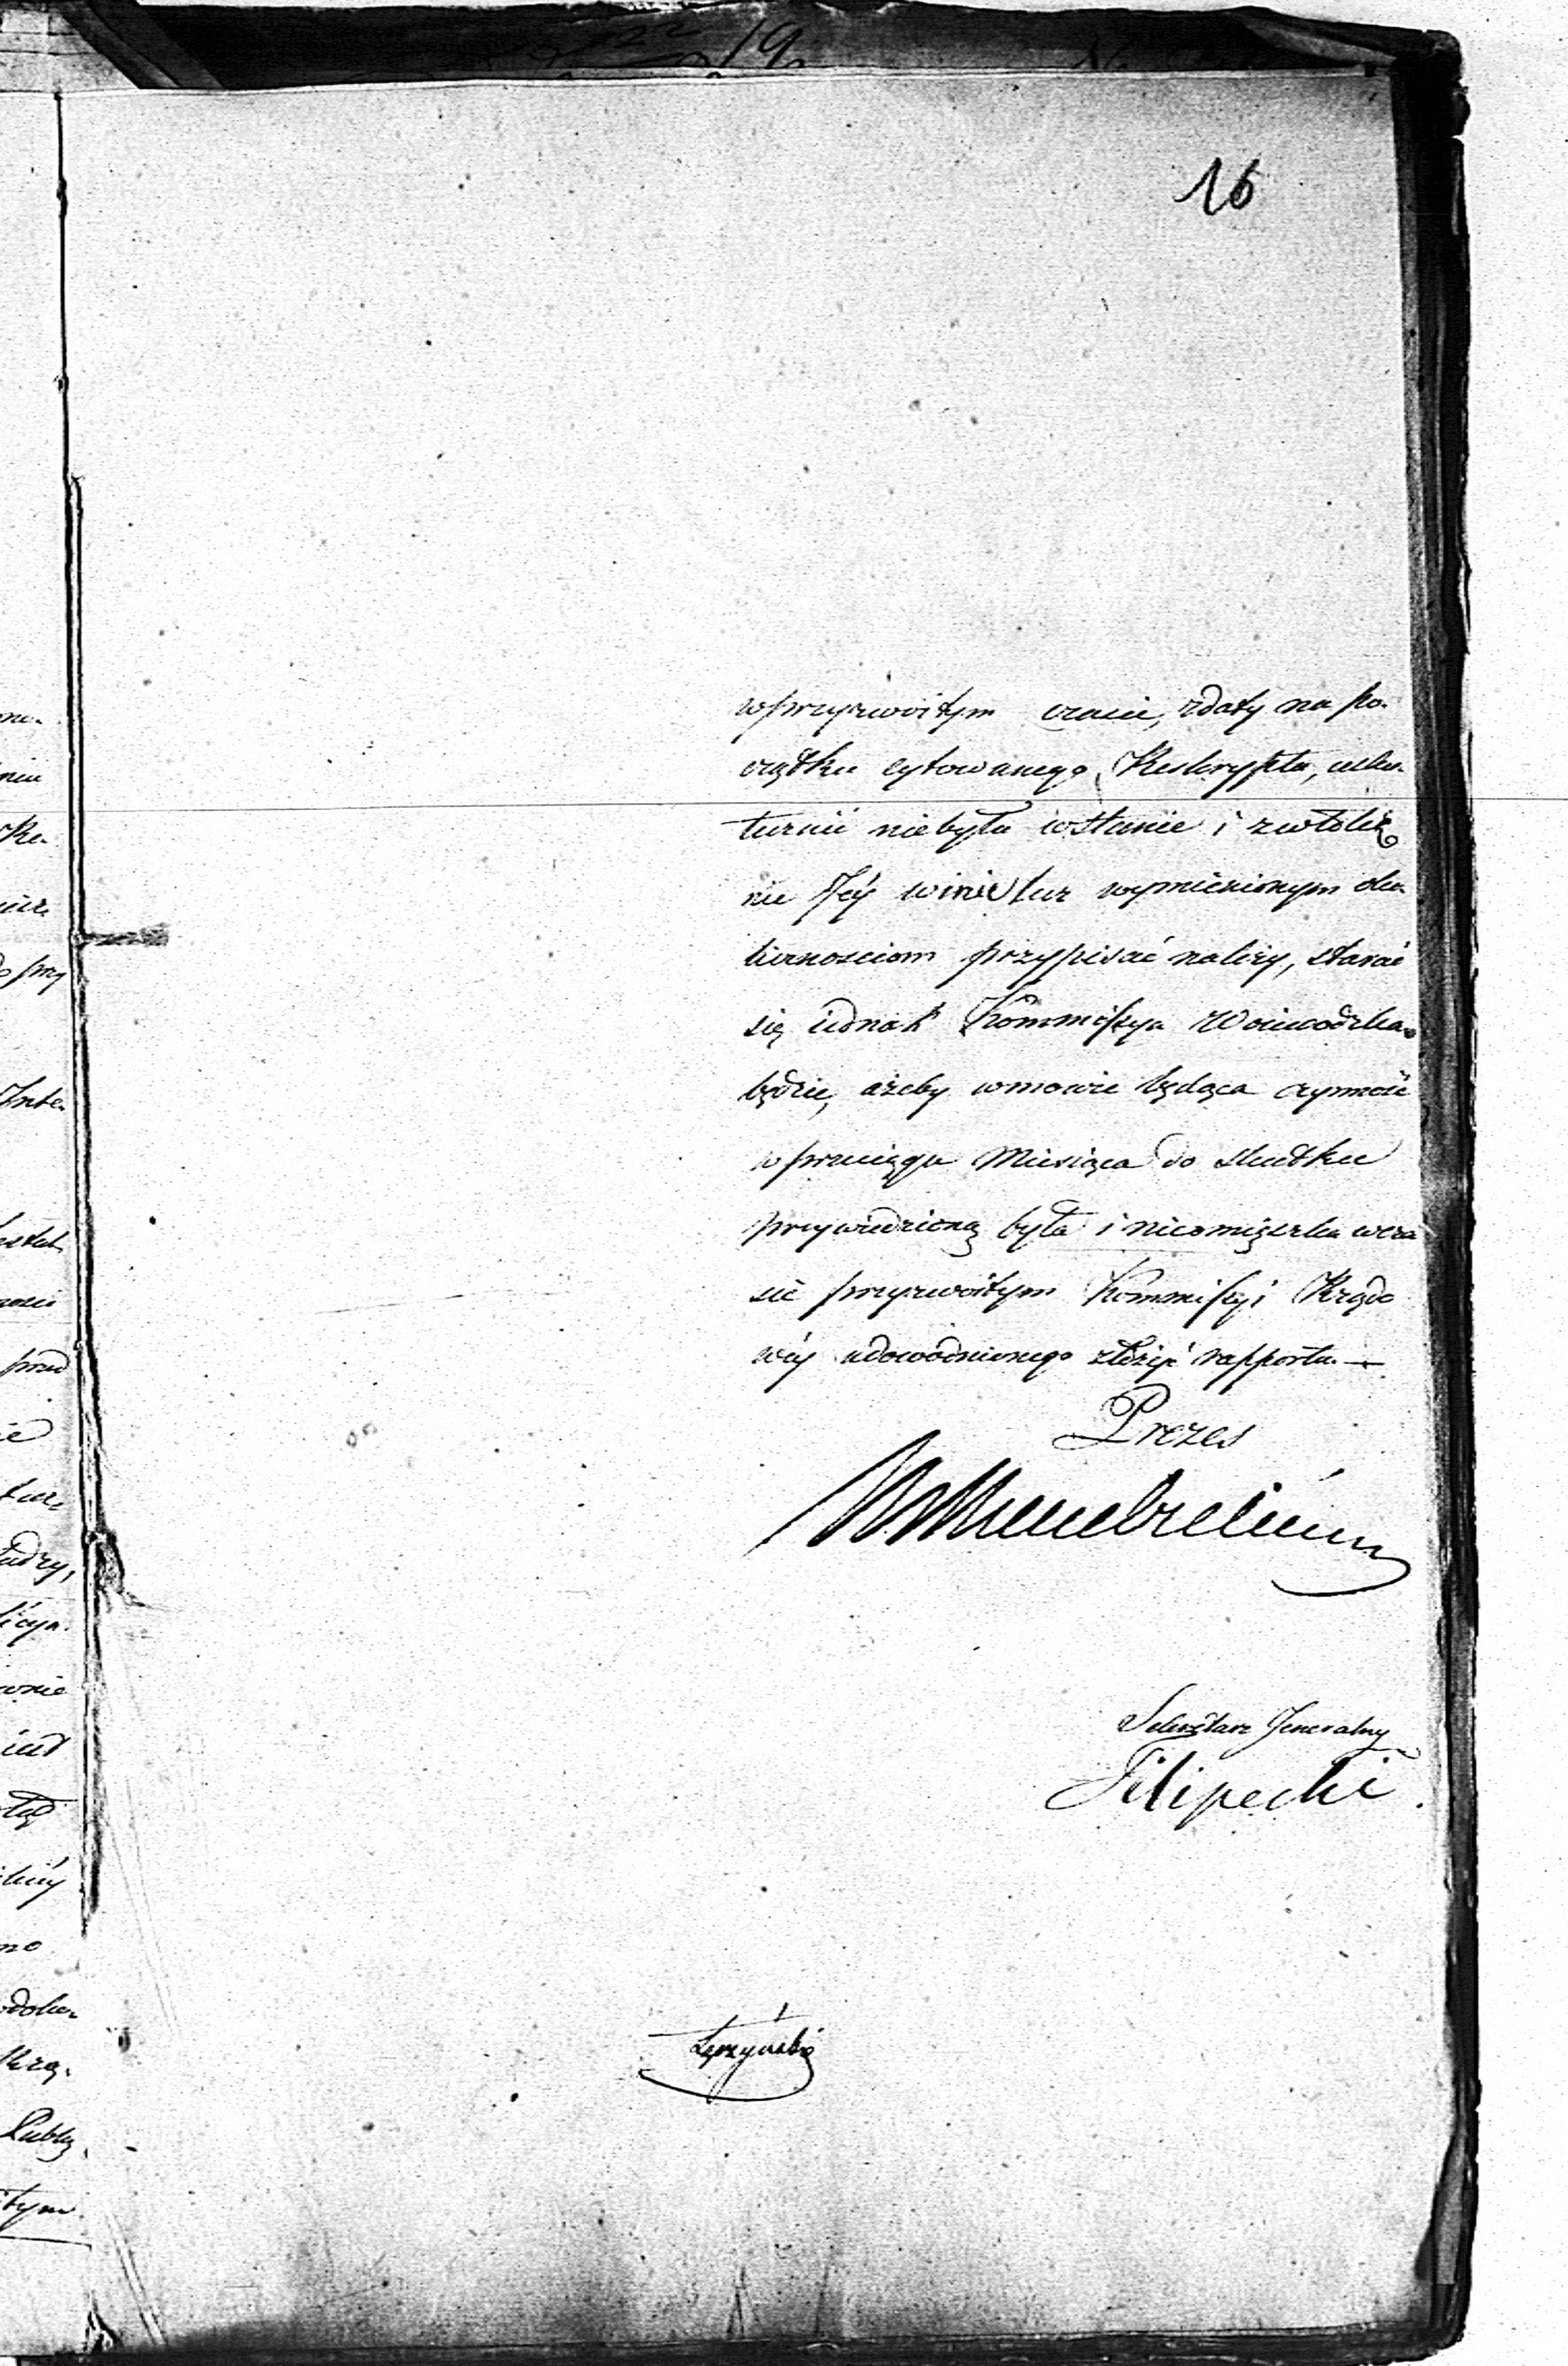 16
wprzyzwoitym czasie, zdaty na po-
czątku cytowanego Reskryptu, usku-
tecznić niebyła wstanie i zwłokę
nie Jéy winie lecz wymienionym oko
licznosciom przypisać należy, starać
się iednak Kommissya Woiewodzka
będzie, ażeby wmowie będąca czynność
w przeciągu Miesiąca do skutku
przywiedzioną była i nieomięszka wcza
sie przyzwoitym Kommissyi Rządo
wéy udowodnionego złożyć rapportu.—
Prezes
Sekretarz Jeneralny
Filipecki